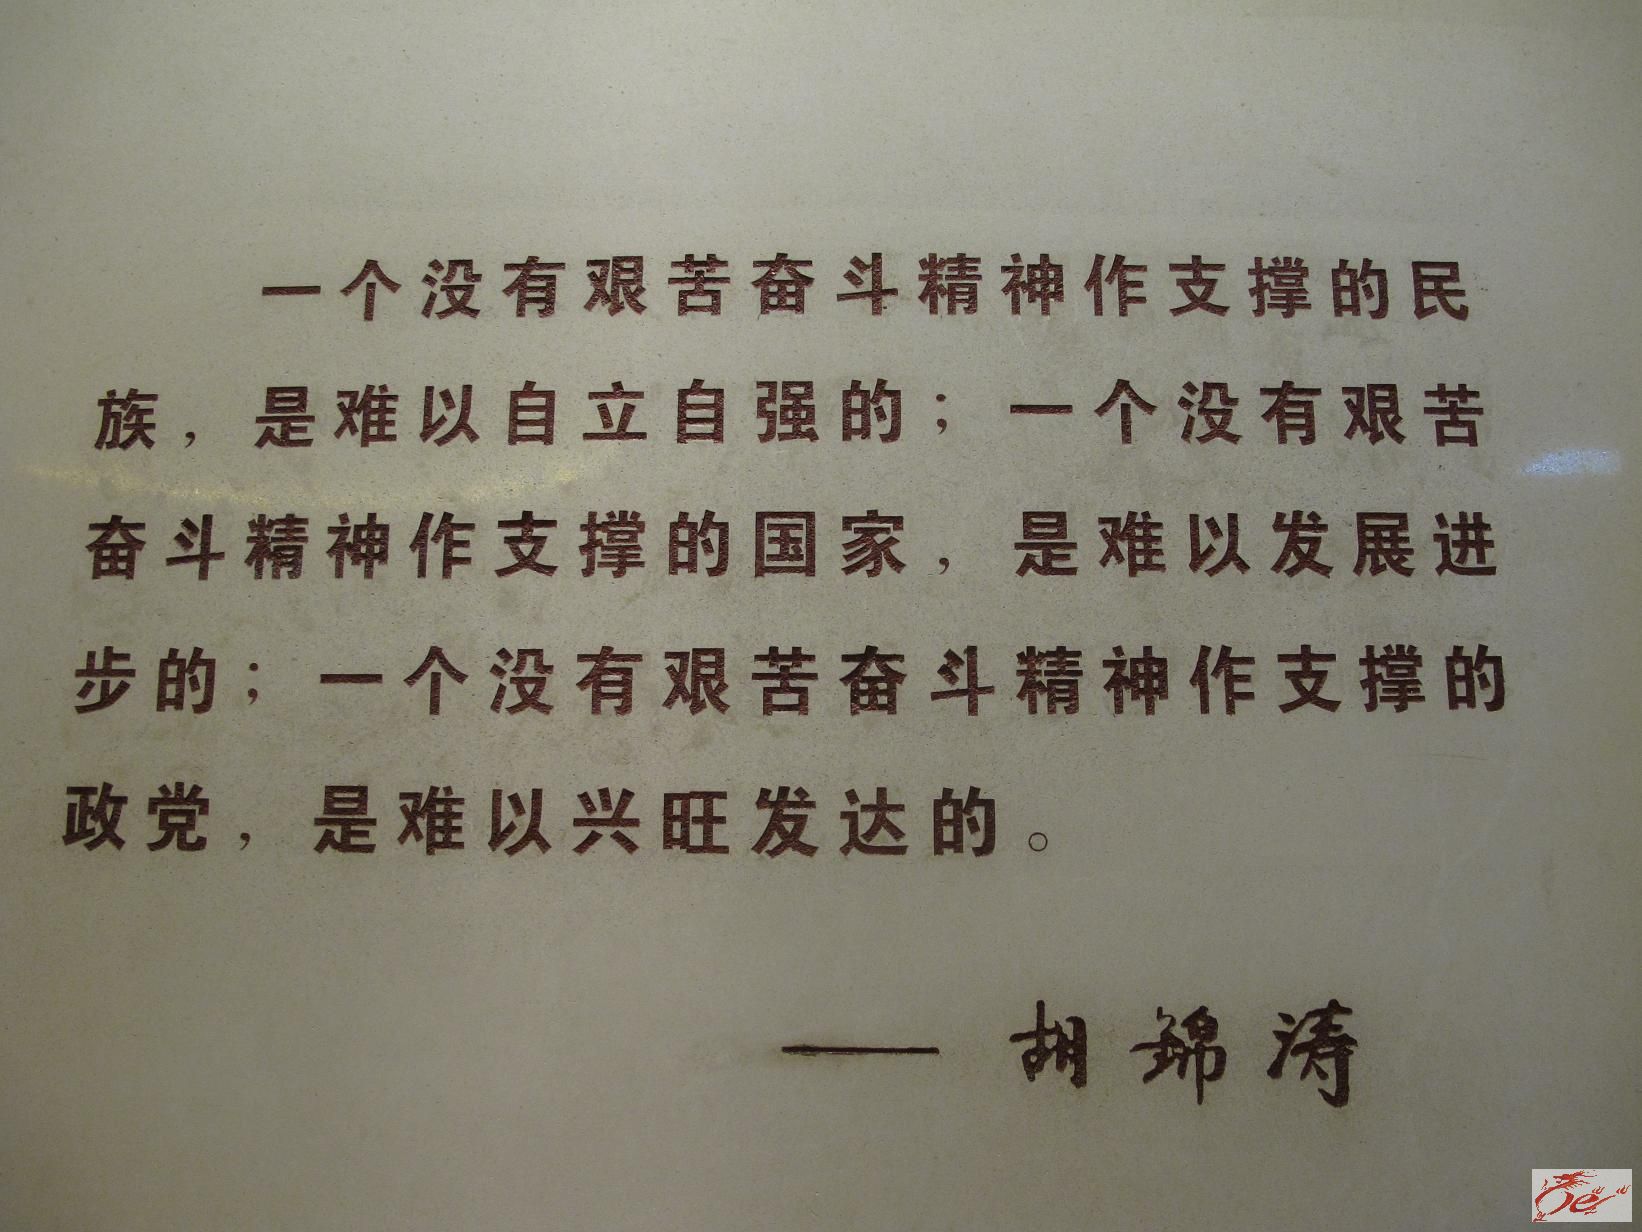 一个没有艰苦奋斗精神作支撑的民
族，是难以自立自强的；一个没有艰苦
奋斗精神作支撑的国家，是难以发展进
步的；一个没有艰苦奋斗精神作支撑的
政党，是难以兴旺发达的。
——胡锦涛